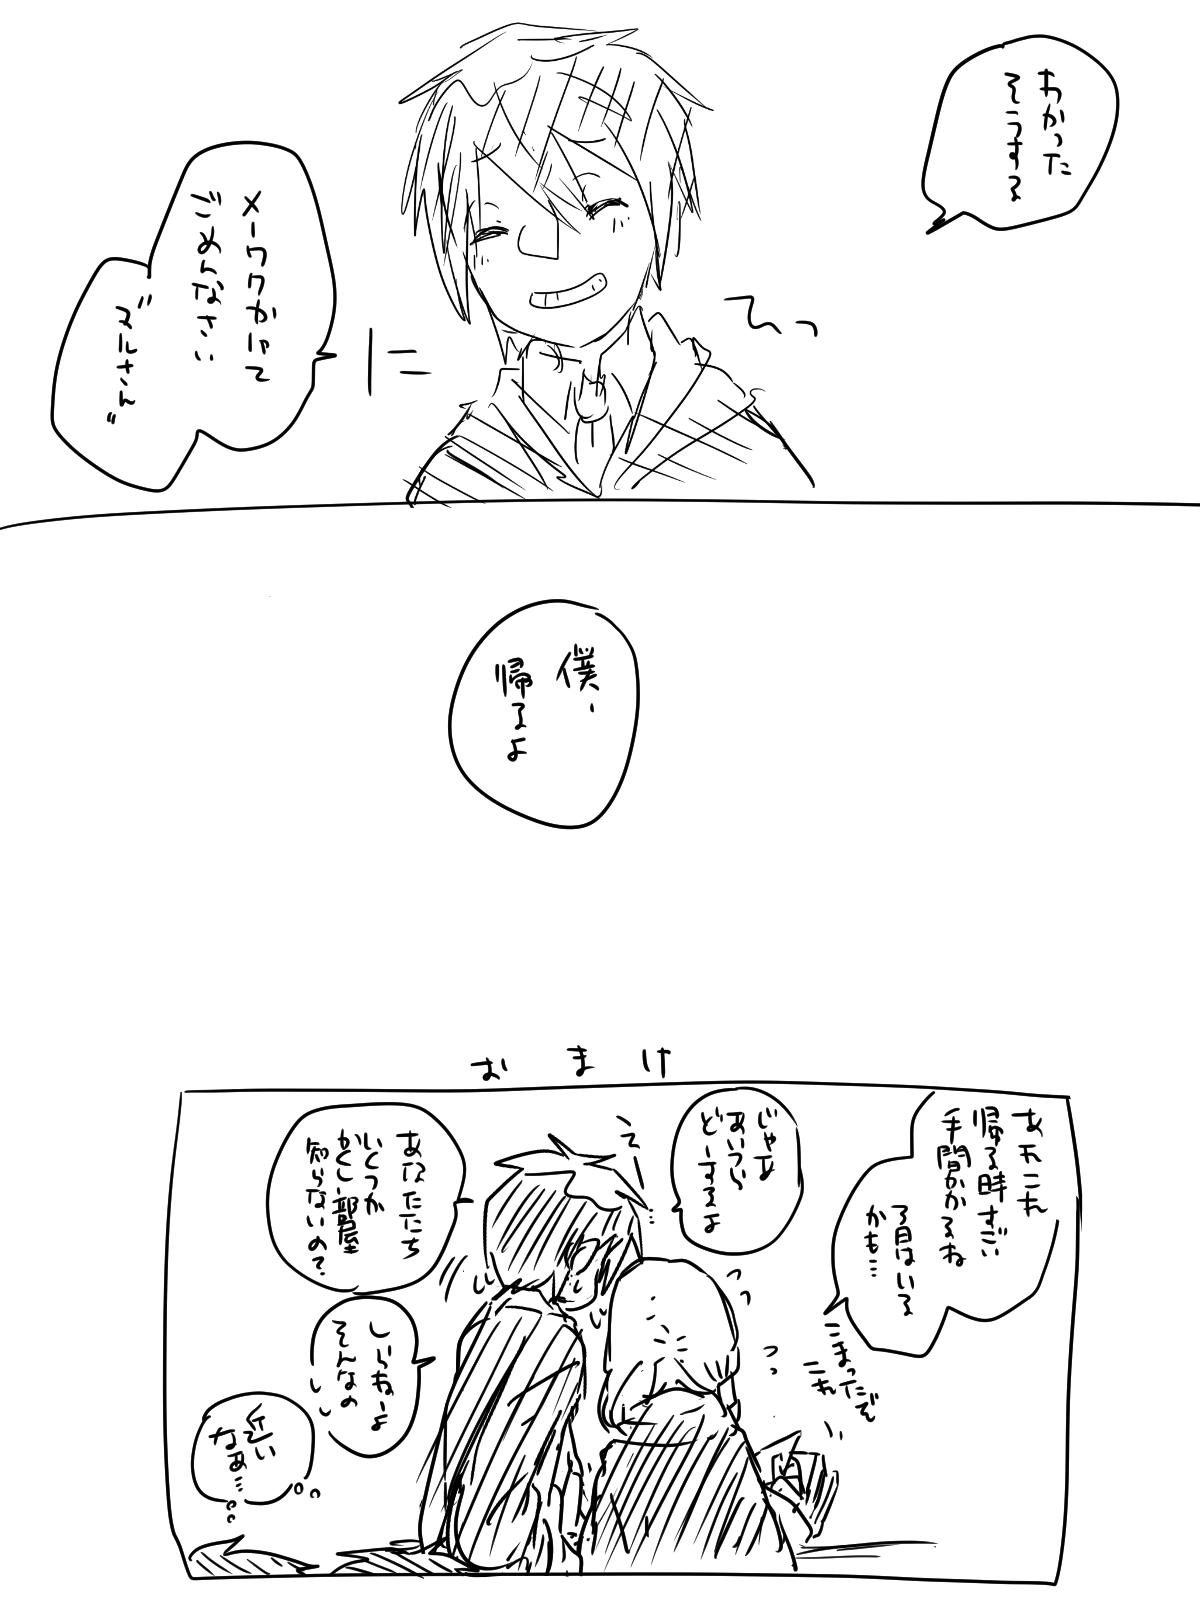 わかった
そうする
へっ
メーワクかけて
ごめんなさい
"マルさん"
に
僕、
帰るよ
おまけ
あれこれ
帰る時すごい
手間かかるね
3日はいる
かも…
こまったぞ
これ
じゃあ
あいつら
どーするよ
あなたたち
いくつか
かくし部屋
知らないの?
しらねーよ
そんなの
近い
なあ…